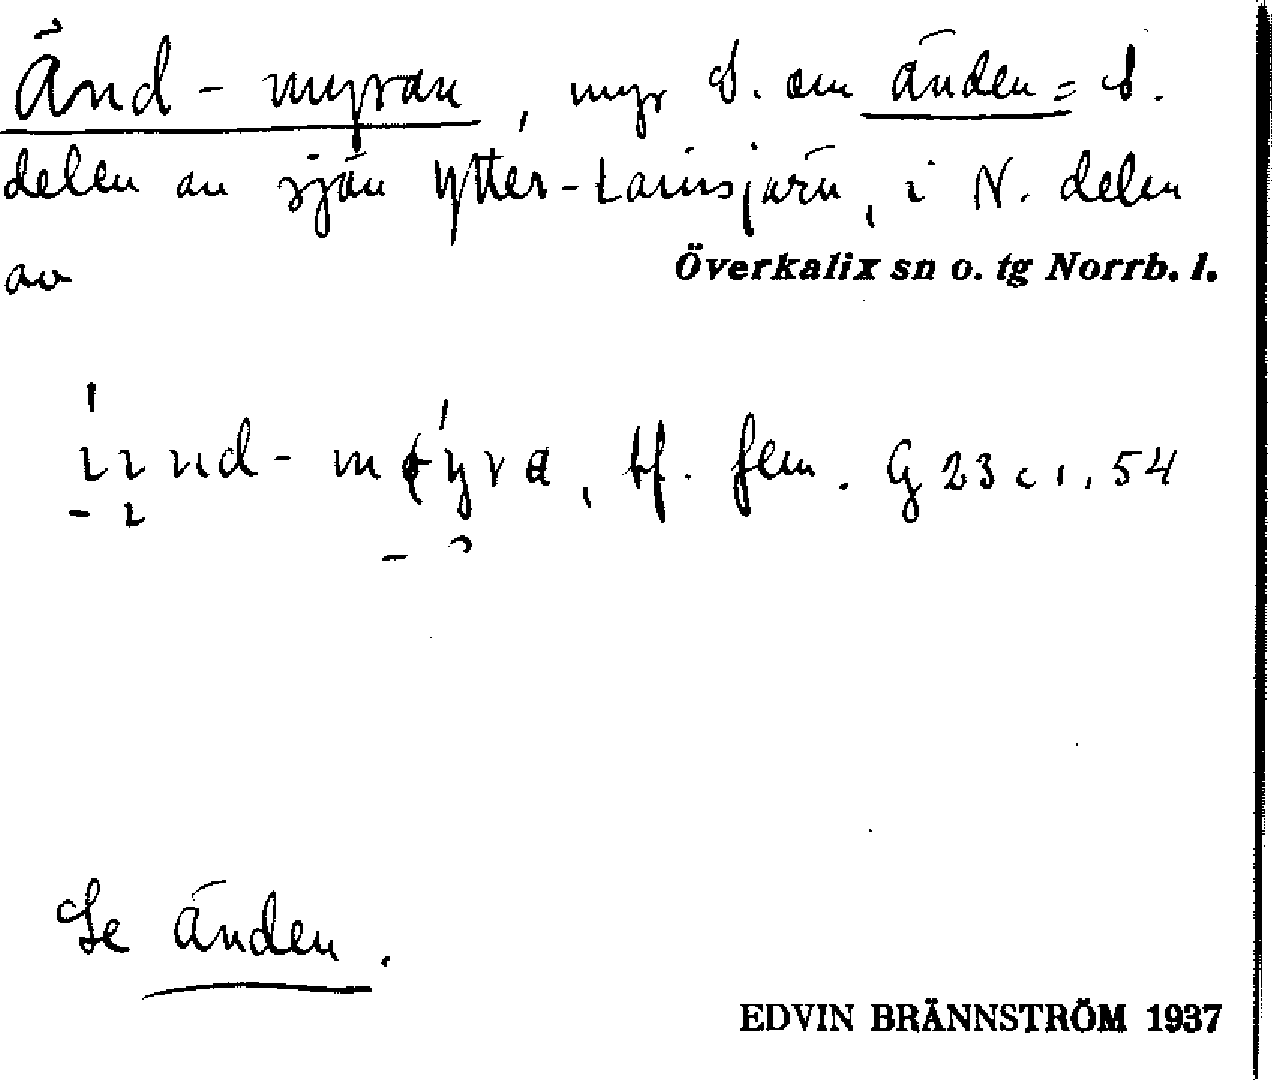 Änd-myran, myr S. om änden = S.
delen av sjön Ytter-Lansjärv, i N. delen
av
Överkalix sn o. tg Norrb. l.
bf. fem. G 23 c 1, 54
Se änden.
EDVIN BRÄNNSTRÖM 1937